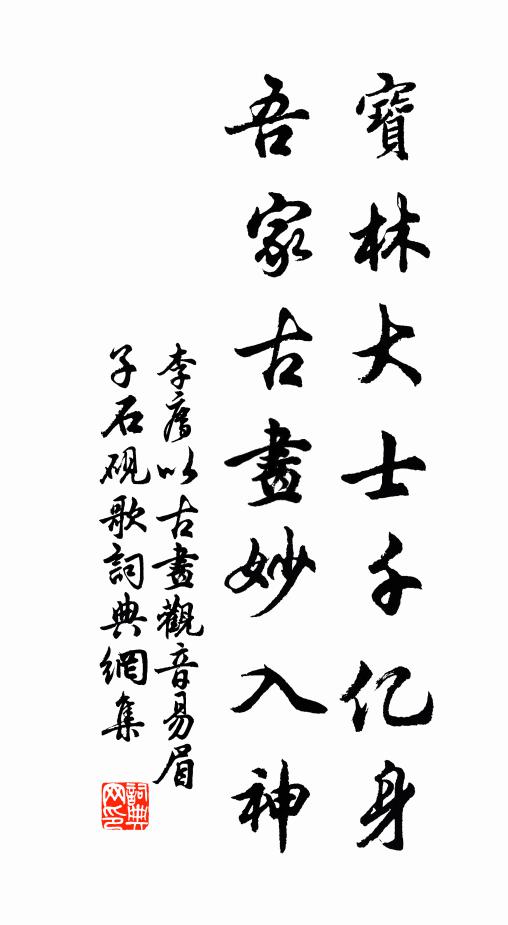 寶林大士千亿身
吾家古畫妙入神
李廌以古畫觀音易眉
子石硯歌詞典網集
詞典网印